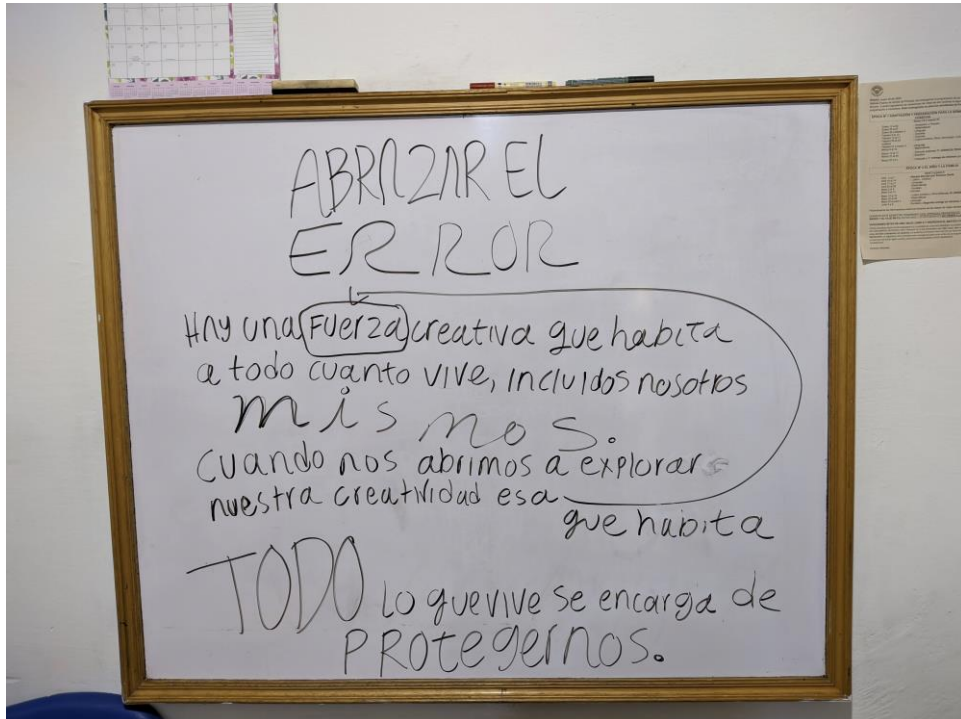 ABRAZAR EL
ERROR
Hay una Fuerza creativa que habita
a todo cuanto vive, incluidos nosotros
mismos.
cuando nos abrimos a explorar
nuestra creatividad esa
que habita
TODO lo que vive se encarga de
PROtegernos.